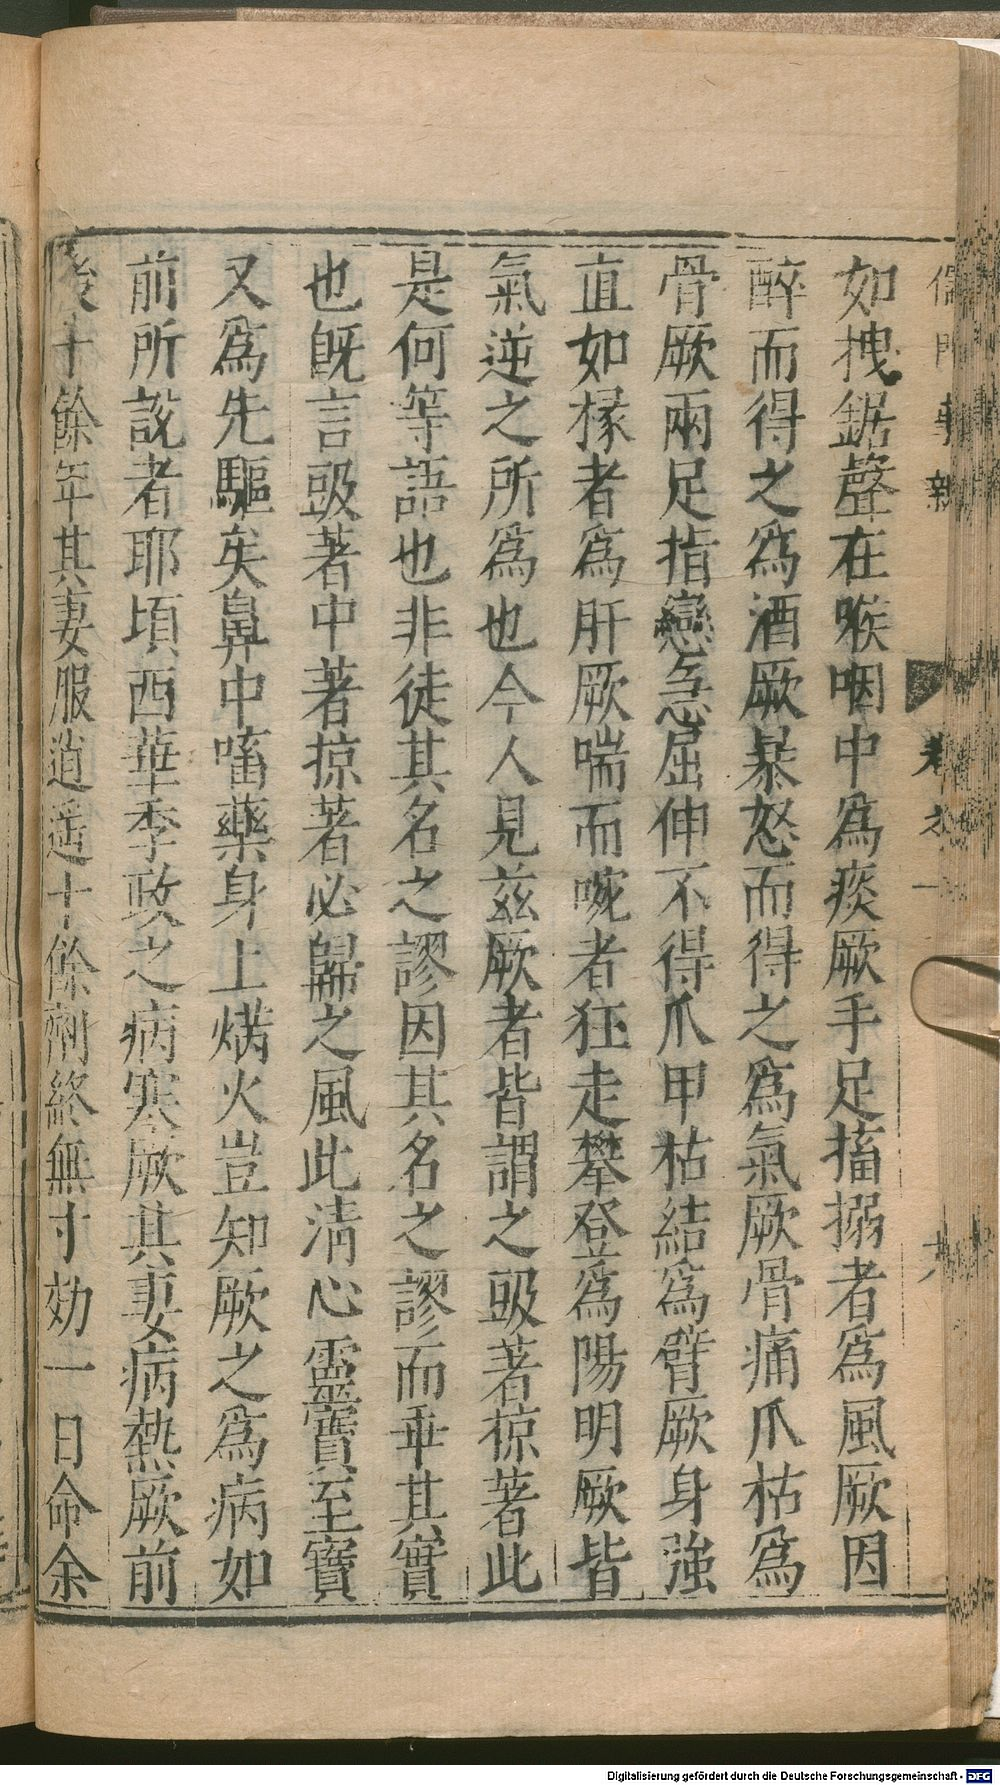 如拽鋸聲在喉咽中爲痰厥手足搐搦者爲風厥因
醉而得之爲酒厥暴怒而得之爲氣厥骨痛爪枯爲
骨厥兩足指攣急屈伸不得爪甲枯結爲臂厥身強
直如椽者爲肝厥喘而啘者狂走攀登爲陽明厥皆
氣逆之所爲也今人見兹厥者皆謂之𣪠著掠著此
是何等語也非徒其名之謬因其名之謬而乖其實
也既言𣪠著中著掠著必歸之風此淸心靈寶至寶
又爲先驅矣鼻中嗃藥身上燒火豈知厥之爲病如
前所說者耶頃西華季政之病寒厥其妻病熱厥前
後十餘年其妻服逍遥十餘劑終無寸効一日命余
儒門事親
卷之一
十八
Digitalisierung gefördert durch die Deutsche Forschungsgemeinschaft - DFG